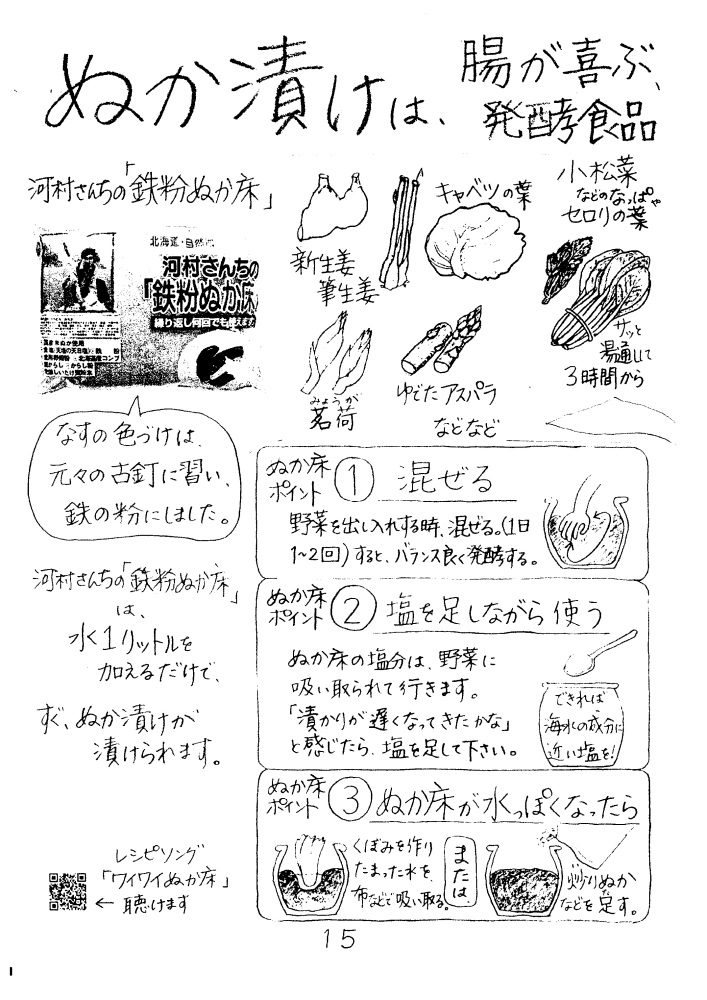 ぬか漬けは、
腸が喜ぶ、
発酵食品
河村さんちの「鉄粉ぬか床」
北海道・自然
河村さんちの
「鉄粉ぬか床
繰り返し何回でも使えます
新生姜
筆生姜
キャベツの葉
小松菜
などのなっぱや
セロリの葉
サッと
湯通して
3時間から
みょうが
茗荷
ゆでたアスパラ
などなど
なすの色づけは、
元々の古釘に習い、
鉄の粉にしました。
ぬか床
ポイント
① 混ぜる
野菜を出し入れする時、混ぜる。(1日
1~2回)すると、バランス良く発酵する。
河村さんちの「鉄粉ぬか床」
は、
水1リットルを
加えるだけで、
すぐ、ぬか漬けが
漬けられます。
ぬか床
ポイント
② 塩を足しながら使う
ぬか床の塩分は、野菜に
吸い取られて行きます。
「漬かりが遅くなってきたかな」
と感じたら、塩を足して下さい。
できれば
海水の成分に
近い塩を!
ぬか床
ポイント
③ ぬか床が水っぽくなったら
くぼみを作り
たまった水を、
布などで吸い取る。
または、
炒りぬか
などを足す。
レシピソング
「ワイワイぬか床」
← 聴けます
15